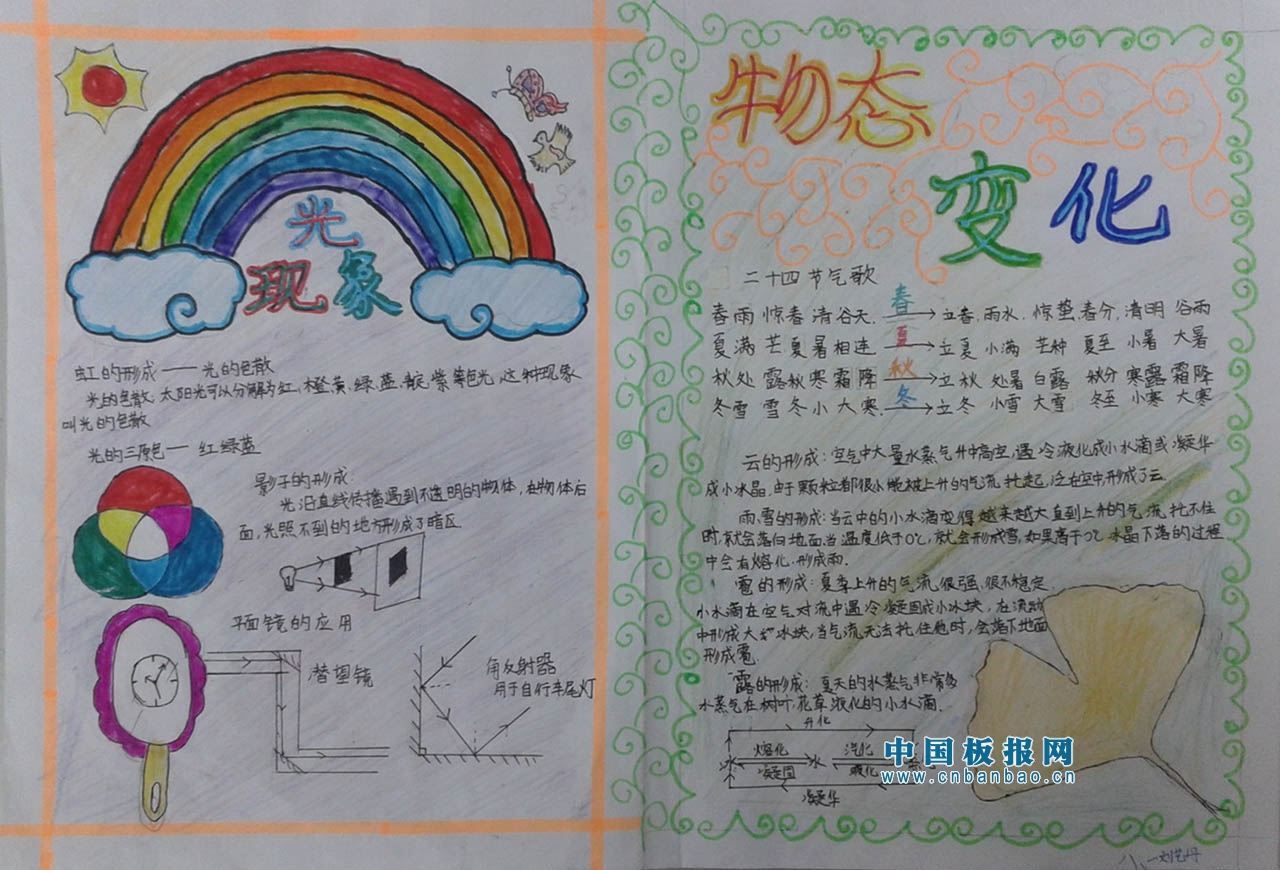 光
现象
虹的形成——光的色散
光的色散:太阳光可以分解为红、橙、黄、绿、蓝、靛、紫等色光,这种现象
叫光的色散
光的三原色——红绿蓝
影子的形成:
光沿直线传播遇到不透明的物体,在物体后
面,光照不到的地方形成了暗区
平面镜的应用
潜望镜
角反射器
用于自行车尾灯
物态
变化
二十四节气歌
春雨惊春清谷天. 春 立春.雨水.惊蛰.春分.清明 谷雨
夏满 芒夏暑相连 夏 立夏 小满 芒种 夏至 小暑 大暑
秋处 露秋寒霜降 秋 立秋 处暑 白露 秋分 寒露 霜降
冬雪 雪冬小大寒 冬 立冬 小雪 大雪 冬至 小寒 大寒
云的形成:空气中大量水蒸气升中高空,遇冷液化成小水滴或凝华
成小冰晶,由于颗粒都很小能被上升的气流托起,
在空中形成了云.
雨、雪的形成:当云中的小水滴变得越来越大直到上升的气流托不住
时,就会落向地面当温度低于0℃,就会形成雪,如果高于0℃冰晶下落的过程
中会有熔化.形成雨.
雹的形成:夏季上升的气流很强.很不稳定
小水滴在空气对流中遇冷凝固成小冰块,在流动
中形成大冰块,当气流无法托住他时,会落下地面
形成雹.
露的形成:夏天的水蒸气非常多
水蒸气在树叶花草液化的小水滴.
升化
熔化 汽化
冰 水
凝固 液化
凝华
中国板报网
www.cnbanbao.cn
八、一刘艺丹